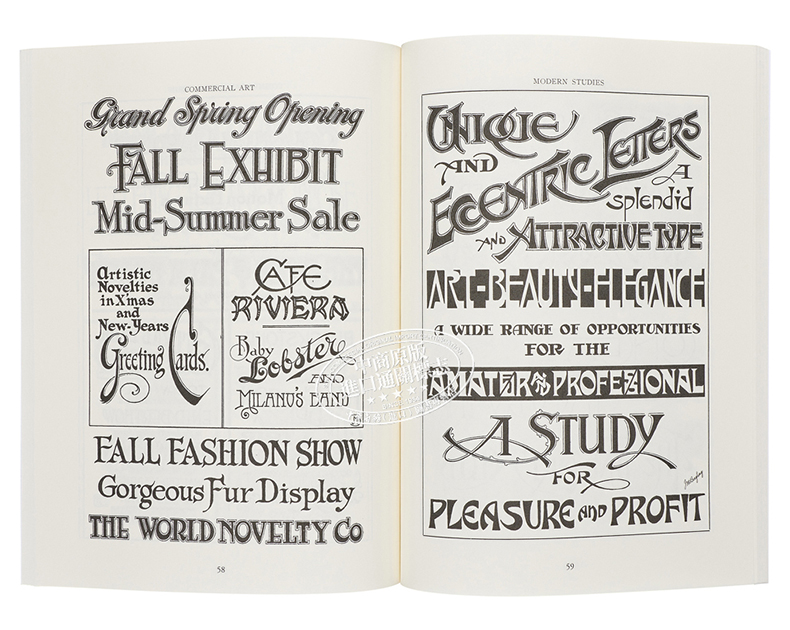 COMMERCIAL ART
Grand Spring Opening
FALL EXHIBIT
Mid-Summer Sale
Artistic
Novelties
in X'mas
and
New-Years
Greeting Cards.
CAFE
RIVIERA
Baby
Lobster
AND
MILANO'S BAND
FALL FASHION SHOW
Gorgeous Fur Display
THE WORLD NOVELTY CO
58
MODERN STUDIES
UNIQUE
AND
ECCENTRIC LETTERS
A
splendid
AND ATTRACTIVE TYPE
ART-BEAUTY-ELEGANCE
A WIDE RANGE OF OPPORTUNITIES
FOR THE
AMATER & PROFEZIONAL
A STUDY
FOR
PLEASURE AND PROFIT
59